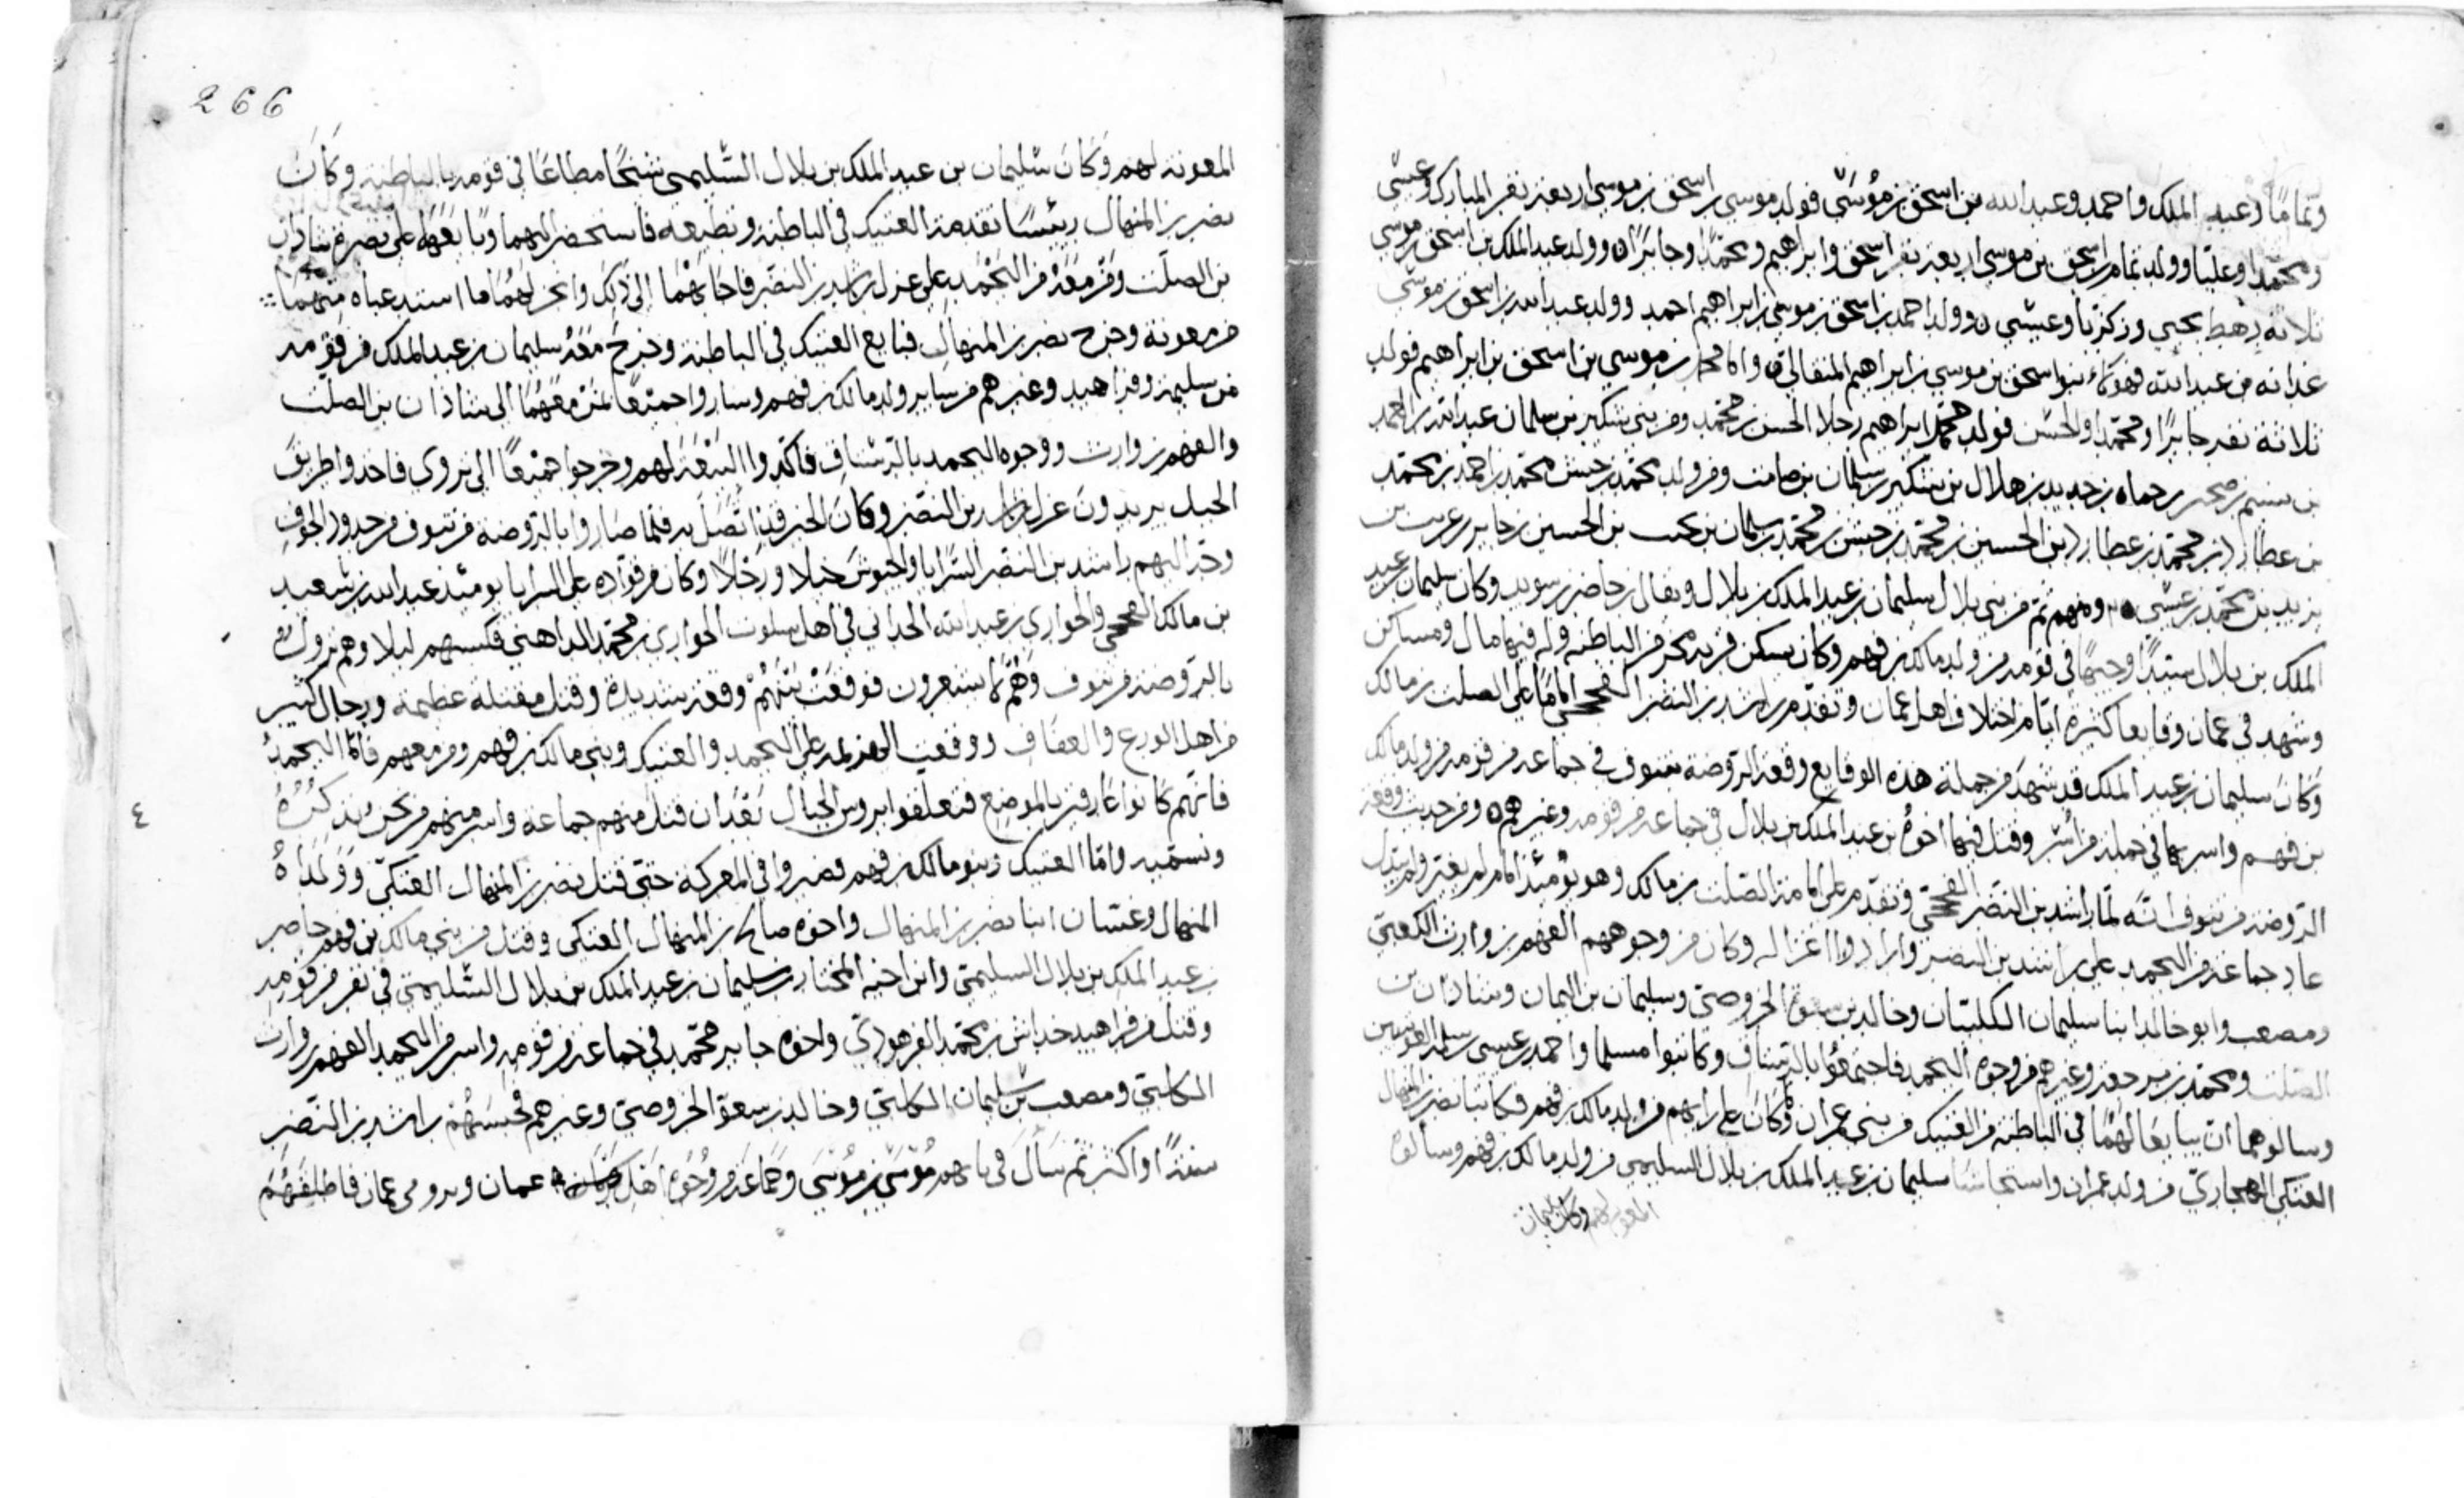 وتماما وعبد الملك واحمد وعبد الله بن اسحق بن موسى فولد موسى بن اسحق بن موسى اربعة نفر المبارك وعيسى
ومحمدا وعليا وولد تمام بن اسحق بن موسى اربعة نفر اسحق وابراهيم ومحمدا وجابرا وولد عبد الملك بن اسحق بن موسى
ثلاثة رهط يحيى وزكريا وعيسى وولد احمد بن اسحق بن موسى بن ابراهيم احمد وولد عبد الله بن اسحق بن موسى
عدانه بن عبد الله فهؤلاء بنو اسحق بن موسى بن ابراهيم واما محمد بن موسى بن اسحق بن ابراهيم فولد
ثلاثة نفر جابرا ومحمدا والحسن فولد محمد ابراهيم رجلا الحسن بن محمد ومن بني سليمان عبد الله بن احمد
بن صحر بن حماه بن جديد بن هلال بن سليمان بن صامت ومن ولد محمد بن حبش محمد بن احمد بن محمد
بن عطار بن محمد بن عطار بن الحسين بن محمد بن حبش بن محمد بن سليمان بن الحسين بن جابر بن
يزيد بن محمد بن عيسى ومنهم ثم من بني بلال سليمان بن عبد الملك بن بلال ويقال بن حاضر بن سويد وكان سليمان بن عبد
الملك بن بلال سيدا وجيها في قومه من ولد مالك بن فهم وكان يسكن قرية مجز من الباطنة وله فيها مال ومساكن
وشهد في عمان وقايعا كثيرة ايام اختلاف اهل عمان وتقدم راشد بن النضر الفجحي اماما على الصلت بن مالك
وكان سليمان بن عبد الملك قد شهد من جملة هذه الوقايع وقعة الروضة بتنوف في جماعة من قومه من ولد مالك
بن فهم واسر بها في جملة من اسر وقتل فيها اخوه بن عبد الملك بن بلال في جماعة من قومه وغيرهم ومن حديث وقعة
الروضة من تنوف انه لما راشد بن النضر الفجحي وتقدم على امامة الصلت بن مالك وهو يومئذ امام لم يغير ولم يبدل
عاد جماعة من اليحمد على راشد بن النضر وارادوا اعزاله وكان من وجوههم الفهم بن وارث الكلبي
ومصعب وابو خالد ابنا سليمان الكلبيان وخالد بن سعوة الخروصي وسليمان بن اليمان وشاذان بن
الصلت ومحمد بن وغيرهم من وجوه اليحمد فاجتمعوا بالرستاق وكاتبوا مسلما واحمد بن عيسى بن
وسالوهما ان يبايعا لهما في الباطنة من العتيك من بني عمران وكان على رايهم من ولد مالك بن فهم فكاتبا نصر بن المنهال
العتكي الهجاري من ولد عمران واستجاشا سليمان بن عبد الملك بن بلال السليمي من ولد مالك بن فهم وسالوه
المعونة لهم وكان سليمان
266
المعونة لهم وكان سليمان بن عبد الملك بن بلال السليمي شيخا مطاعا في قومه بالباطنة وكان
نصر بن المنهال رئيسا تقدمه العتيك في الباطنة وتطيعه فاستحضراهما وبايعهما على نصرة شاذان
بن الصلت ومن معه من اليحمد على عزل راشد بن النضر فاجاباهما الى ذلك وانجز لهما ما استدعياه منهما
من معونة وخرج نصر بن المنهال فبايع العتيك في الباطنة وخرج معه سليمان بن عبد الملك من قومه
من سليمة وفراهيد وغيرهم من ساير ولد مالك بن فهم وساروا جميعا بمن معهما الى شاذان بن الصلت
والفهم بن وارث ووجوه اليحمد بالرستاق فاكدوا البيعة لهم وخرجوا جميعا الى نزوى فاخذوا طريق
الجبل يريدون عزل راشد بن النضر وكان الخبر قد اتصل به فلما صاروا بالروضة من تنوف من حدود الجوف
وجه اليهم راشد بن النضر السرايا والجيوش خيلا ورجلا وكان من قواده على السرايا يومئذ عبد الله بن سعيد
بن مالك الفجحي والحواري بن عبد الله الحداني في اهل سلوت الحواري بن محمد الداهني فكبسهم ليلا وهم نزول
بالروضة من تنوف وهم لا يشعرون فوقعت بينهم وقعة شديدة وقتل مقتلة عظيمة ورجال كثير
من اهل الورع والعفاف ووقعت الهزيمة على اليحمد والعتيك وبني مالك بن فهم ومن معهم فاما اليحمد
فانهم كانوا عارفين بالموضع فتعلقوا بروس الجبال بعد ان قتل منهم جماعة واسر منهم من نحن بذكره
٤
ونسميه واما العتيك وبنو مالك بن فهم فصبروا في المعركة حتى قتل نصر بن المنهال العتكي وولداه
المنهال وغسان ابنا نصر بن المنهال واخوه صالح بن المنهال العتكي وقتل من بني مالك بن فهم حاضر
بن عبد الملك بن بلال السليمي وابن اخيه المختار بن سليمان بن عبد الملك بن بلال السليمي في نفر من قومه
وقتل من فراهيد خداش بن محمد الفرهودي واخوه جابر بن محمد في جماعة من قومه واسر من اليحمد الفهم بن وارث
الكلبي ومصعب بن سليمان الكلبي وخالد بن سعوة الخروصي وغيرهم فحبسهم راشد بن النضر
سنة او اكثر ثم سال في بابهم موسى بن موسى وجماعة من وجوه اهل عمان فاطلقهم